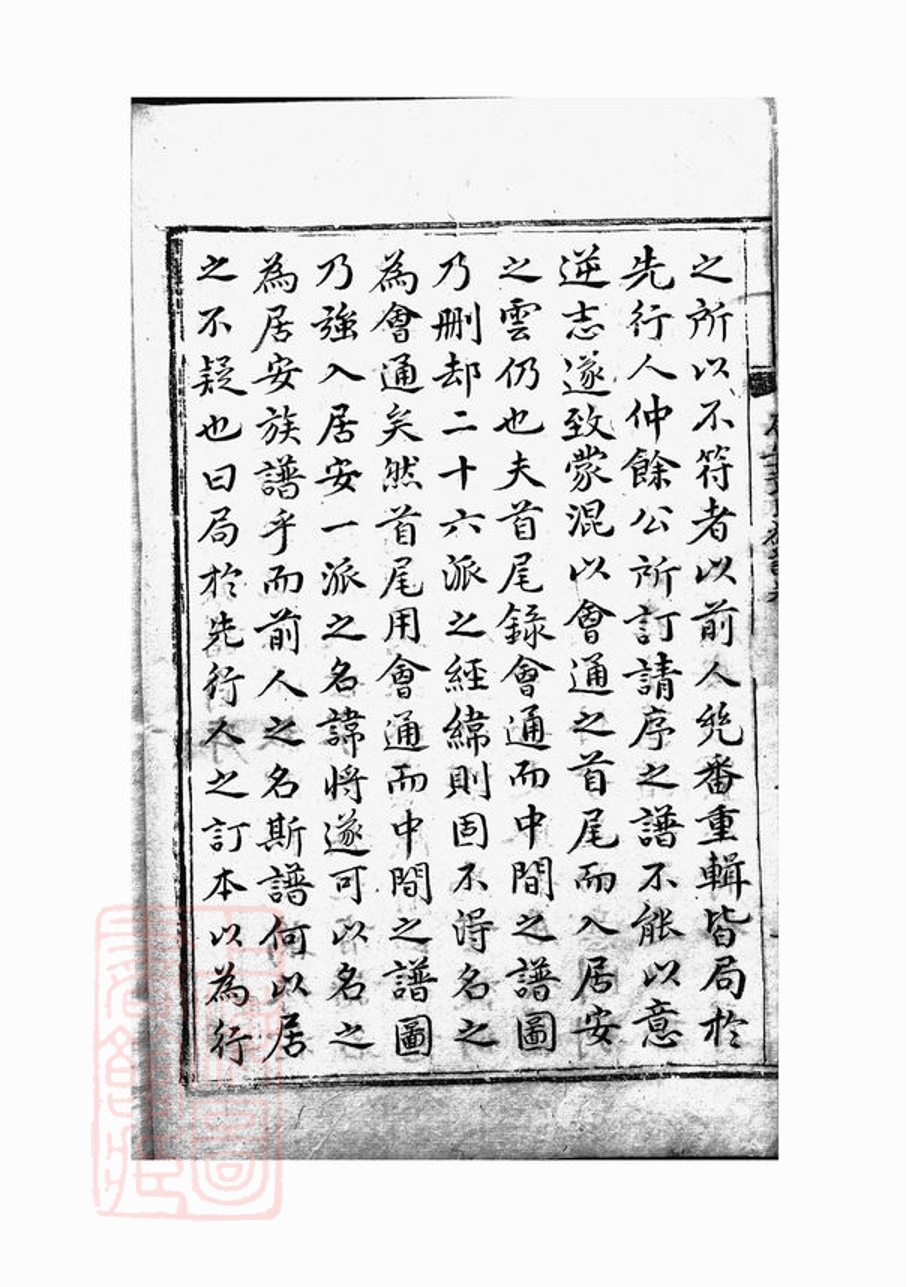 之所以不符者以前人幾番重輯皆局於
先行人仲餘公所訂請序之譜不能以意
逆志遂致蒙混以會通之首尾而入居安
之雲仍也夫首尾錄會通而中間之譜圖
乃刪却二十六派之經緯則固不得名之
為會通矣然首尾用會通而中間之譜圖
乃強入居安一派之名諱將遂可以名之
為居安族譜乎而前人之名斯譜何以居
之不疑也曰局於先行人之訂本以為行